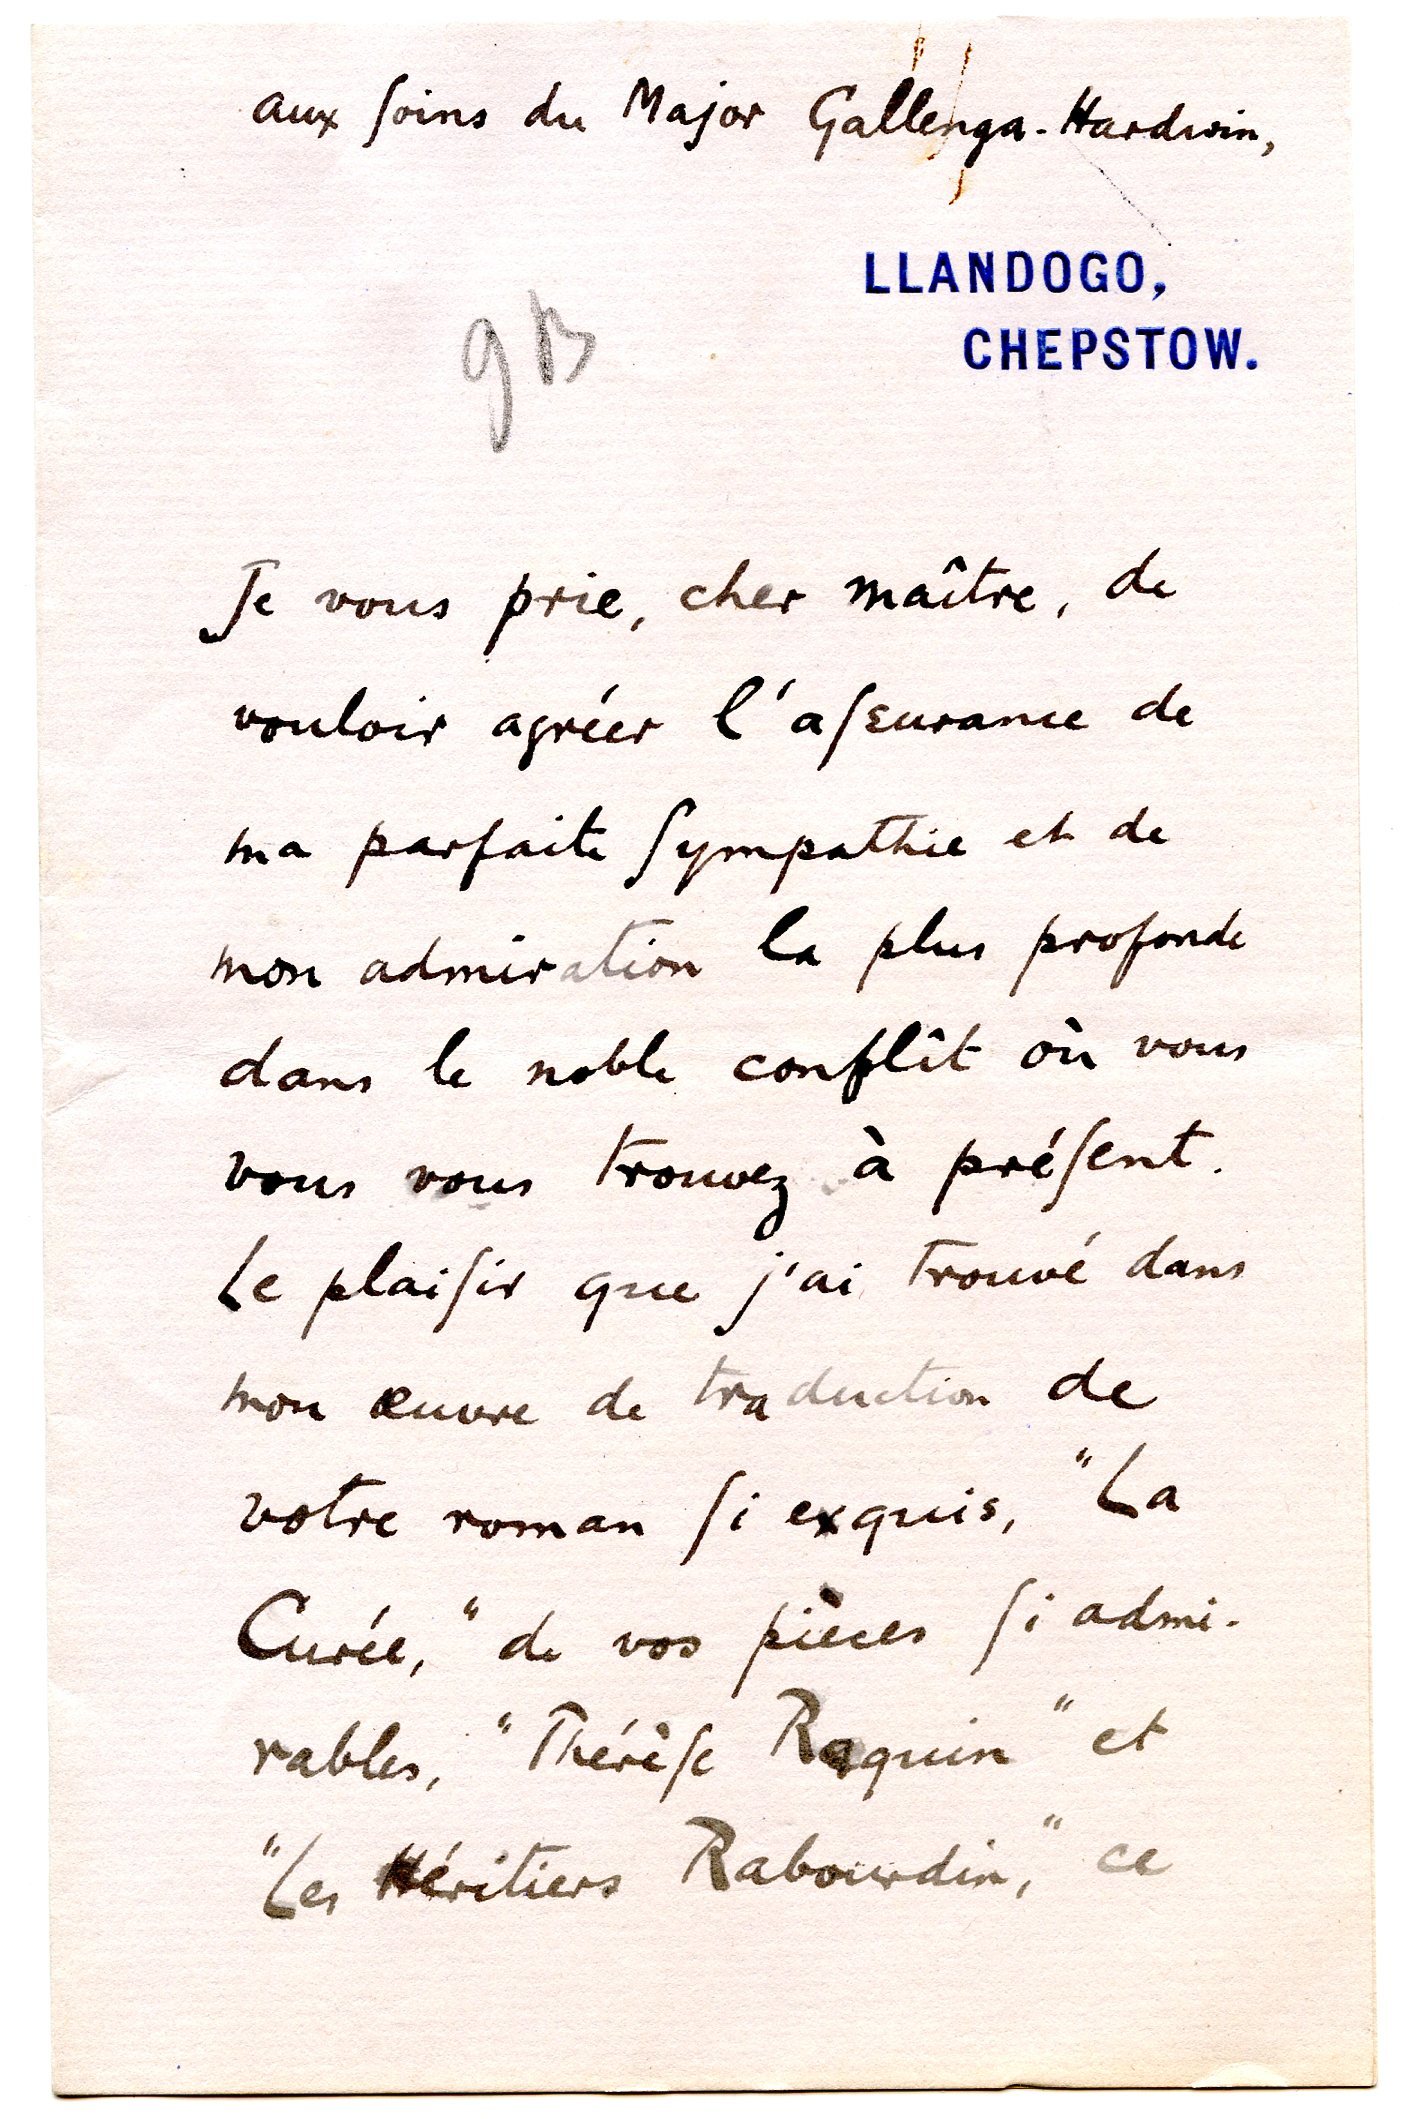 aux soins du Major Gallenga-Hardwin,
LLANDOGO,
CHEPSTOW.
GB
Je vous prie, cher maître, de
vouloir agréer l'assurance de
ma parfaite sympathie et de
mon admiration la plus profonde
dans le noble conflît où vous
vous vous trouvez à présent.
Le plaisir que j'ai trouvé dans
mon œuvre de traduction de
votre roman si exquis, "La
Curée," de vos pièces si admi-
rables, "Thérèse Raquin" et
"Les Héritiers Rabourdin," ce